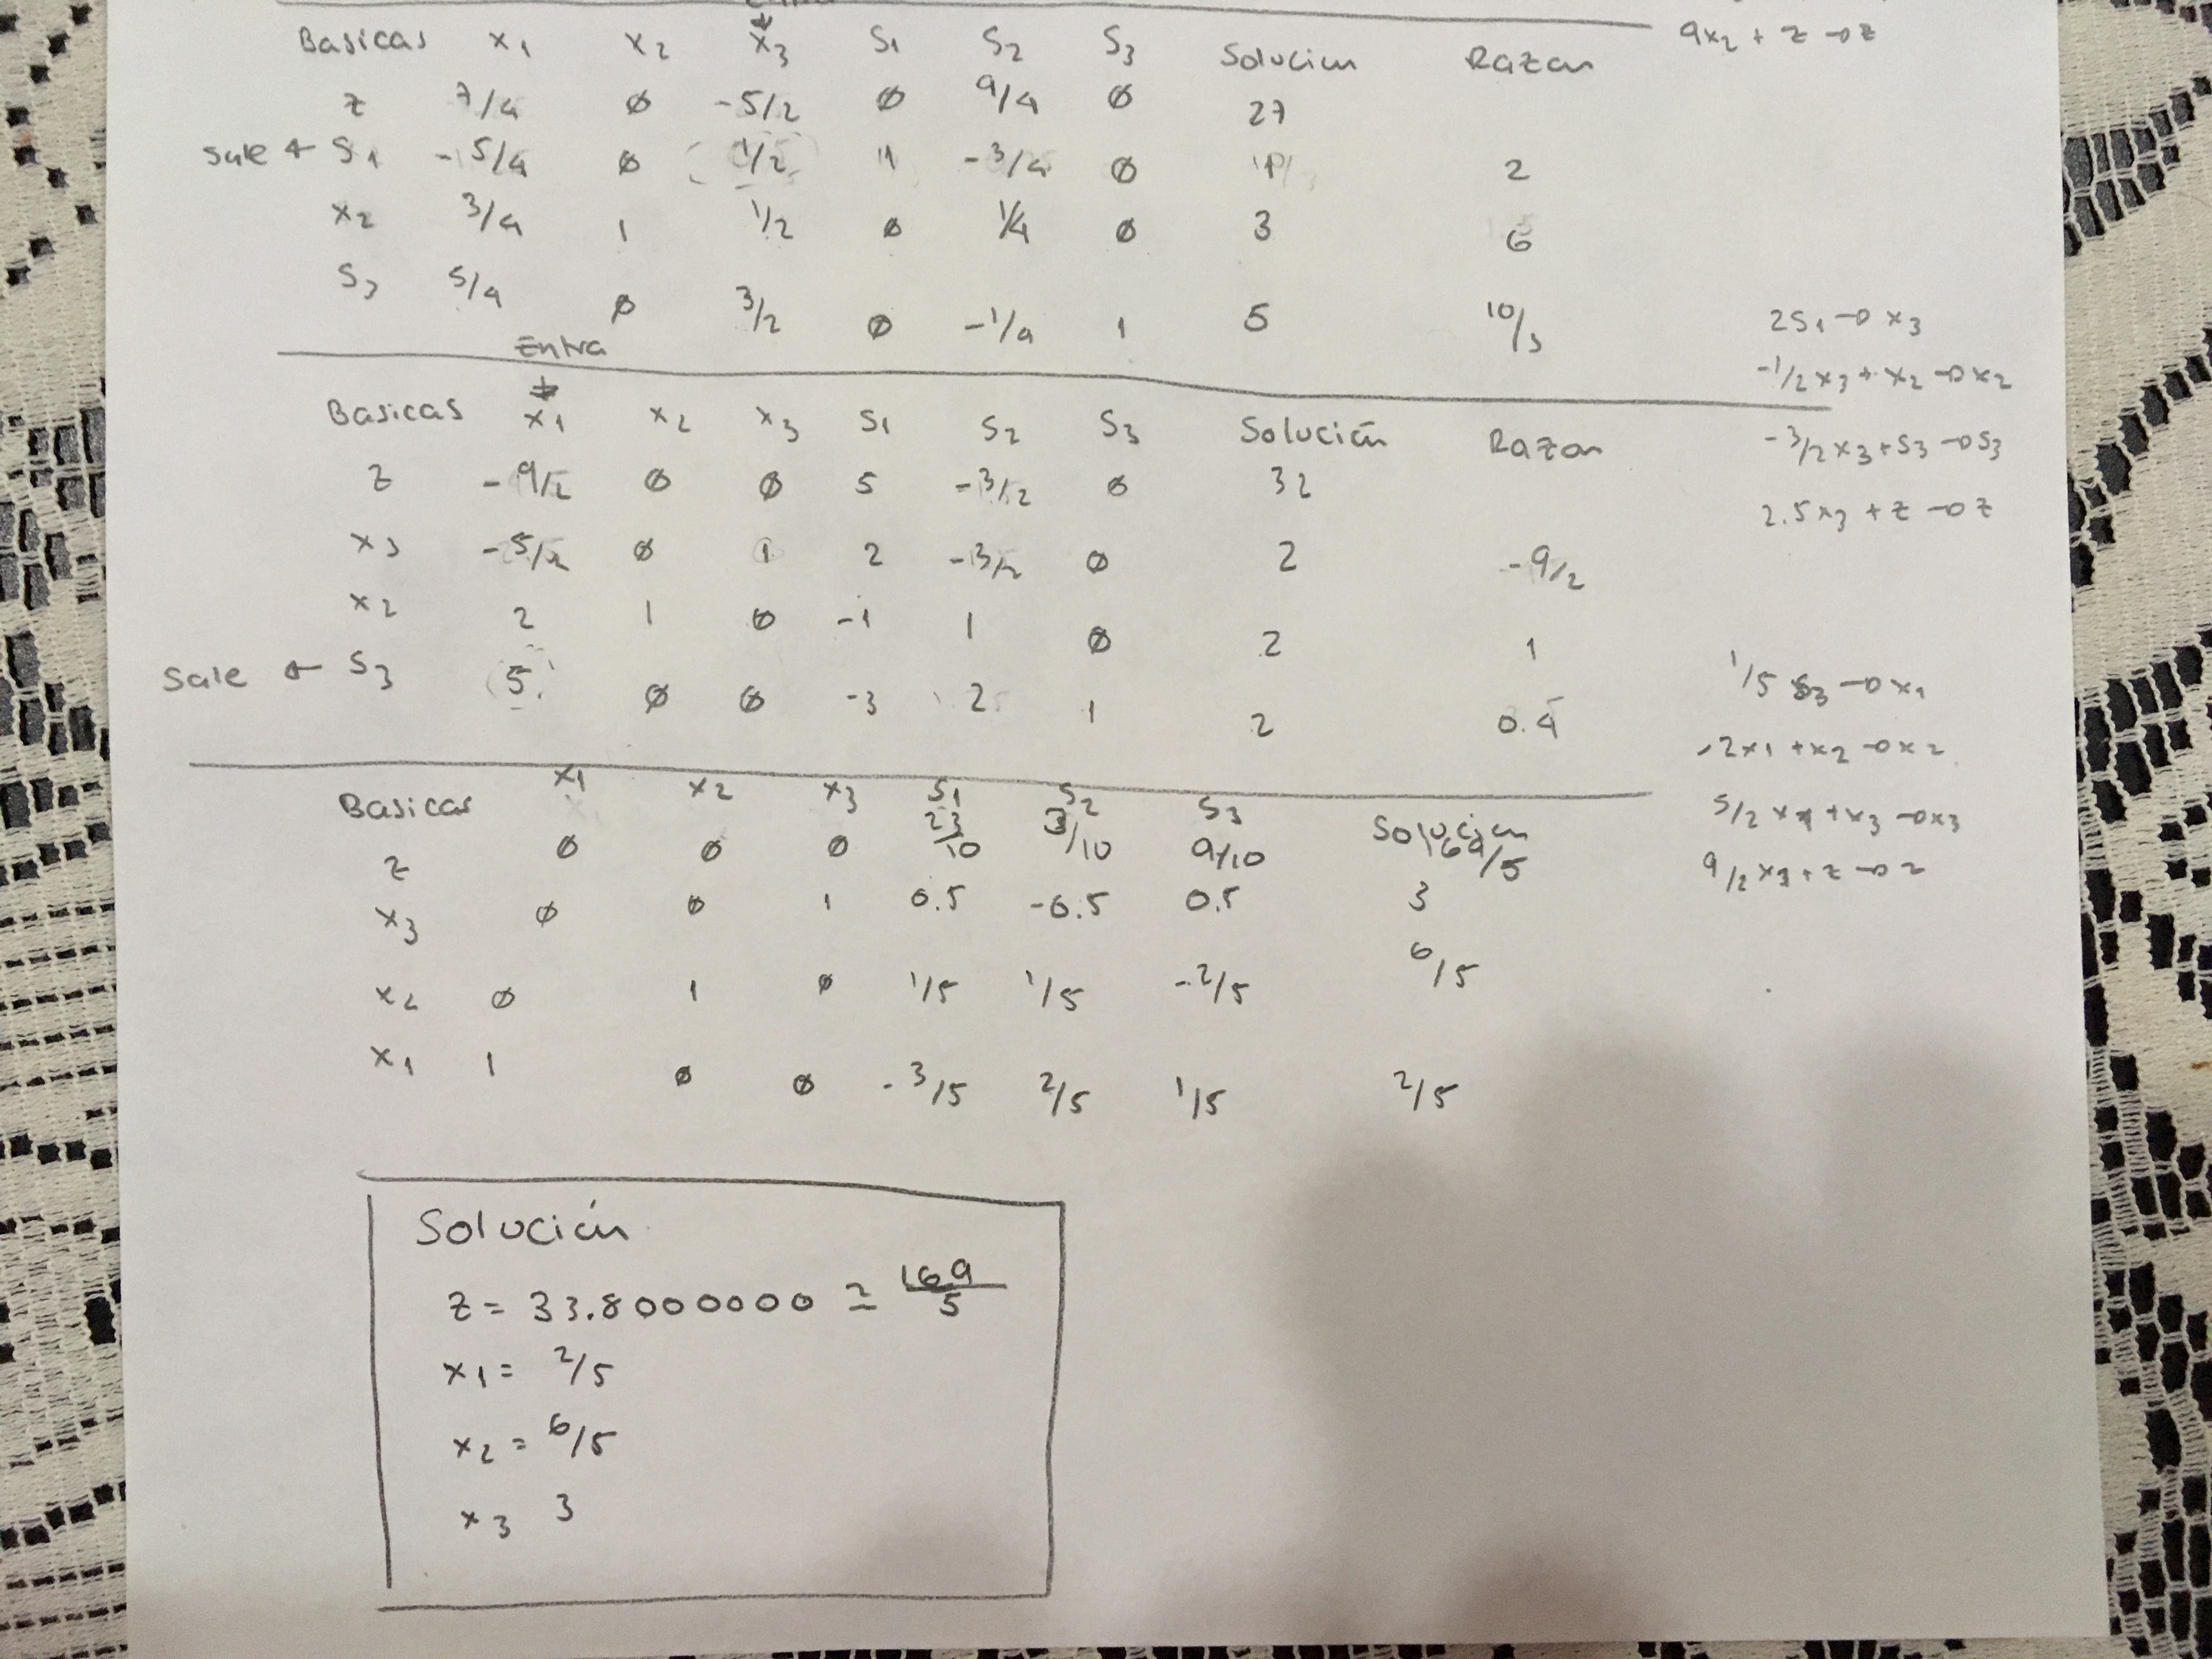 Basicas x1 x2 x3 S1 S2 S3 Solucion Razon
z 7/4 0 -5/2 0 9/4 0 27
Sale ← S1 -5/4 0 1/2 1 -3/4 0 2
x2 3/4 1 1/2 0 1/4 0 3 6
S3 5/4 0 3/2 0 -1/4 1 5 10/3
9x2 + z → z
2S1 → x3
-1/2 x3 + x2 → x2
-3/2 x3 + S3 → S3
2.5x3 + z → z
Entra
Basicas x1 x2 x3 S1 S2 S3 Solución Razon
z -9/2 0 0 5 -3/2 0 32
x3 -5/2 0 1 2 -3/2 0 2
x2 2 1 0 -1 1 0 2 1
Sale ← S3 5 0 0 -3 2 1 2 0.4
1/5 S3 → x1
-2x1 + x2 → x2
5/2 x1 + x3 → x3
9/2 x1 + z → z
Basicas x1 x2 x3 S1 S2 S3 Solución
z 0 0 0 23/10 3/10 9/10 169/5
x3 0 0 1 0.5 -0.5 0.5 3
x2 0 1 0 1/5 1/5 -2/5 6/5
x1 1 0 0 -3/5 2/5 1/5 2/5
Solución
z = 33.80000000 ≈ 169/5
x1 = 2/5
x2 = 6/5
x3 3